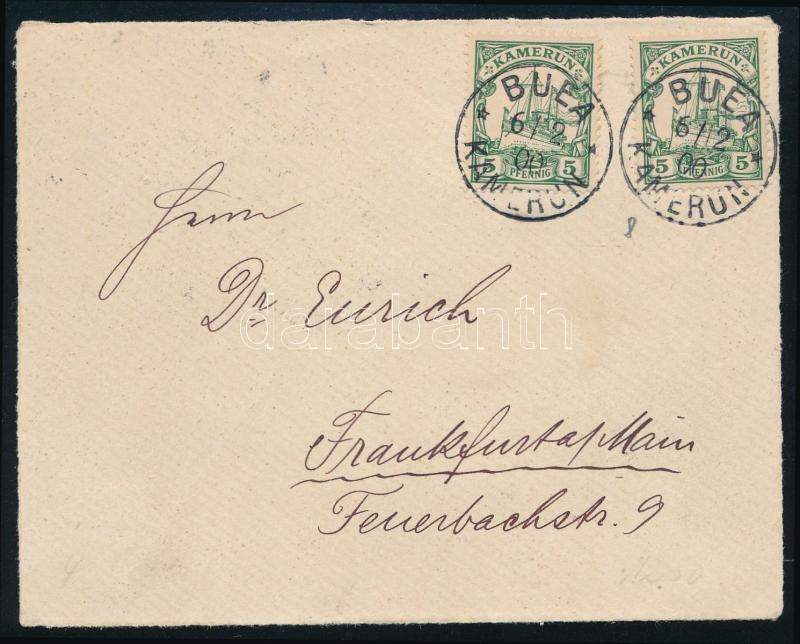 KAMERUN KAMERUN
5 PFENNIG 5 5 PFENNIG 5
* BUEA * * BUEA *
6/12 6/12
00 00
KAMERUN KAMERUN
8
Herrn
Dr. Eurich
darabanth
Frankfurt a/Main
Feuerbachstr. 9
4